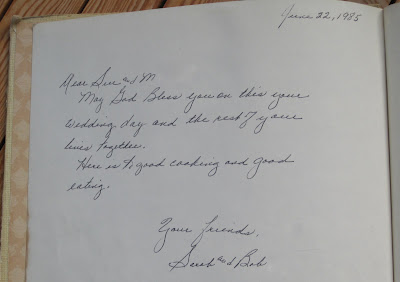 June 22, 1985
Dear Sue and M
May God Bless you on this your
wedding day and the rest of your
lives together.
Here is to good cooking and good
eating.
Your friends,
Sarah and Bob